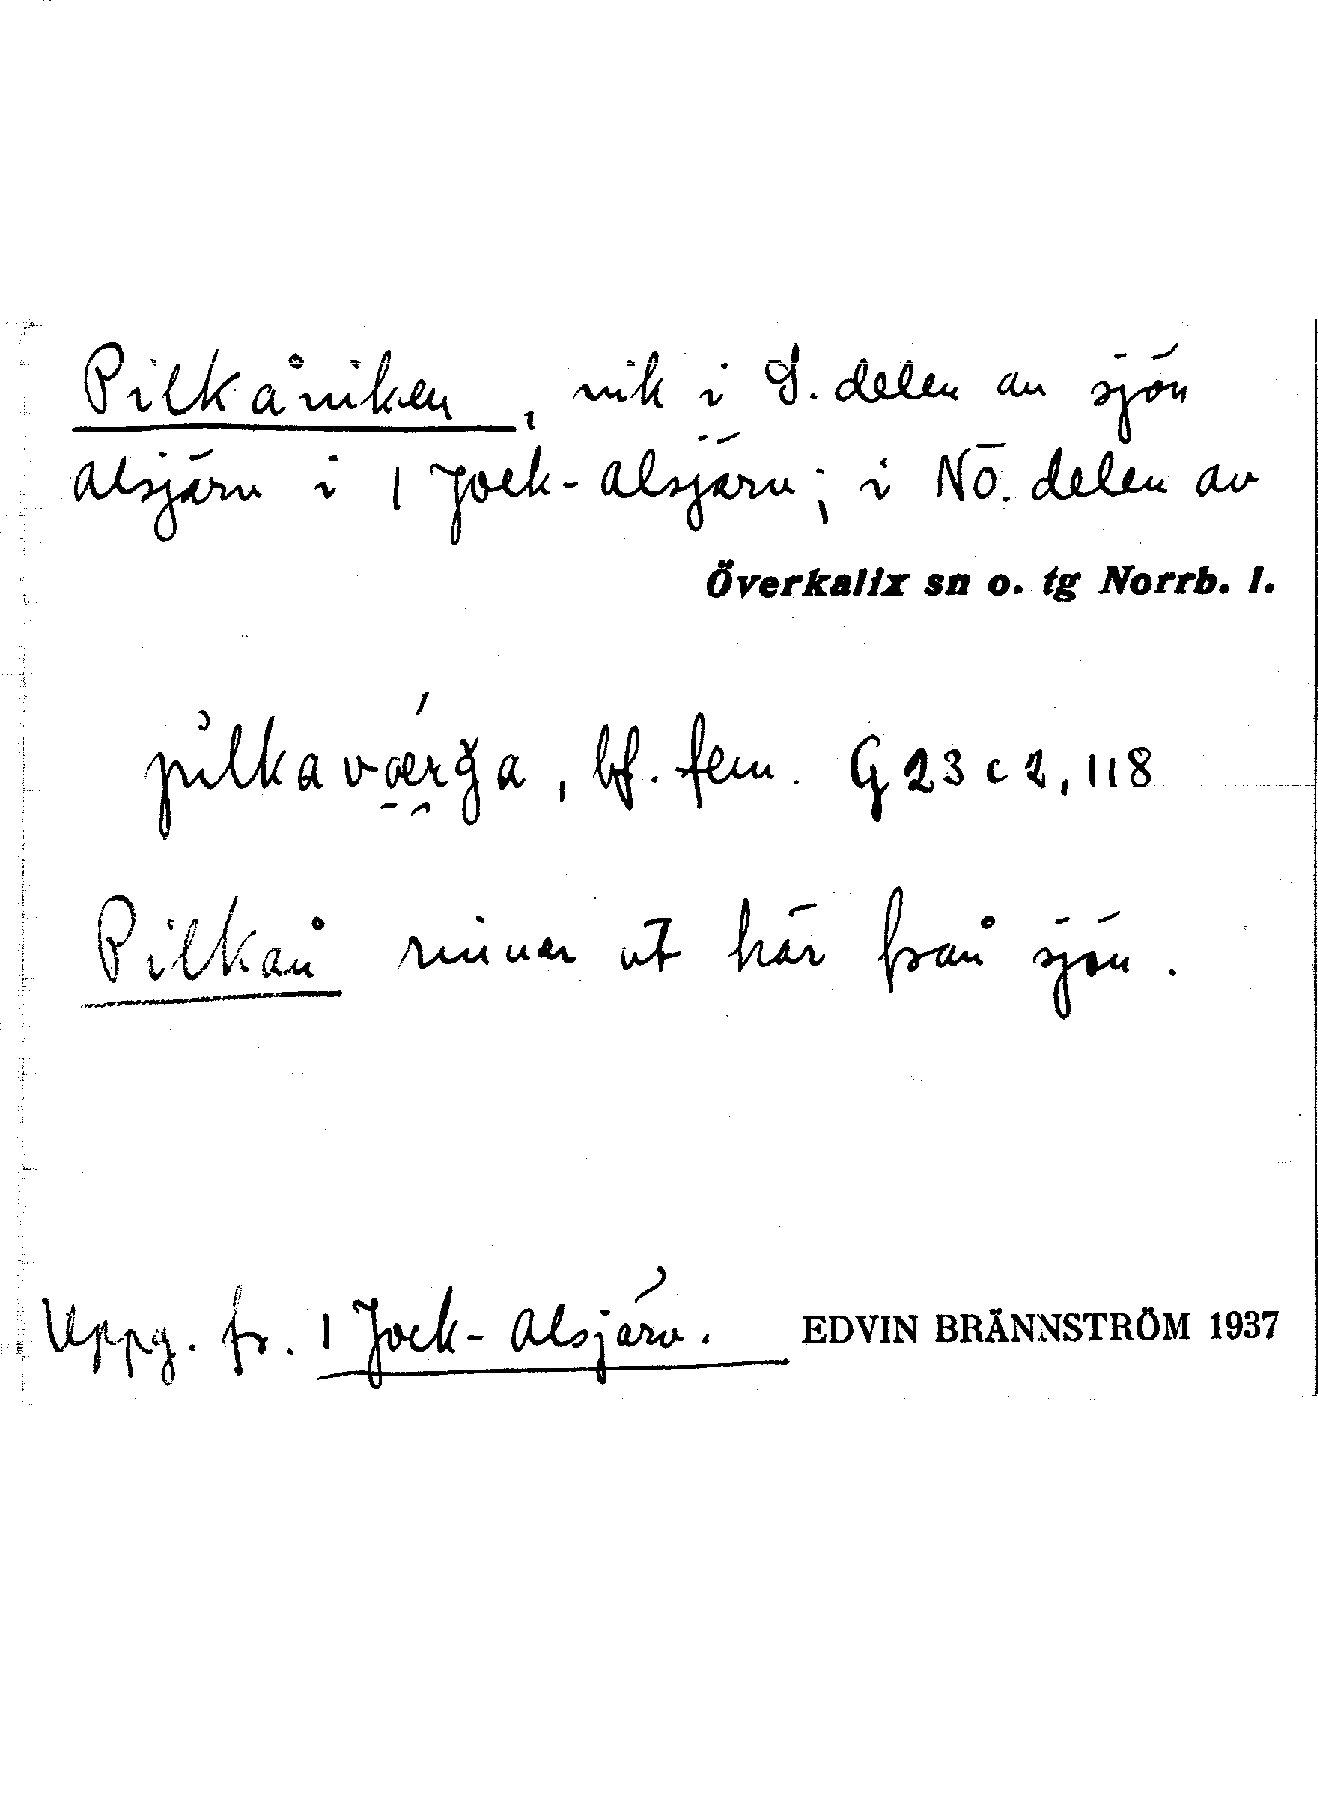 Pilkåviken, vik i S. delen av sjön
Alsjärv i 1 Jock-Alsjärv; i NÖ. delen av
Överkalix sn o. tg Norrb. l.
bf. fem. G 23 c 2, 118
Pilkån rinner ut här från sjön.
Uppg. fr. 1 Jock-Alsjärv. EDVIN BRÄNNSTRÖM 1937